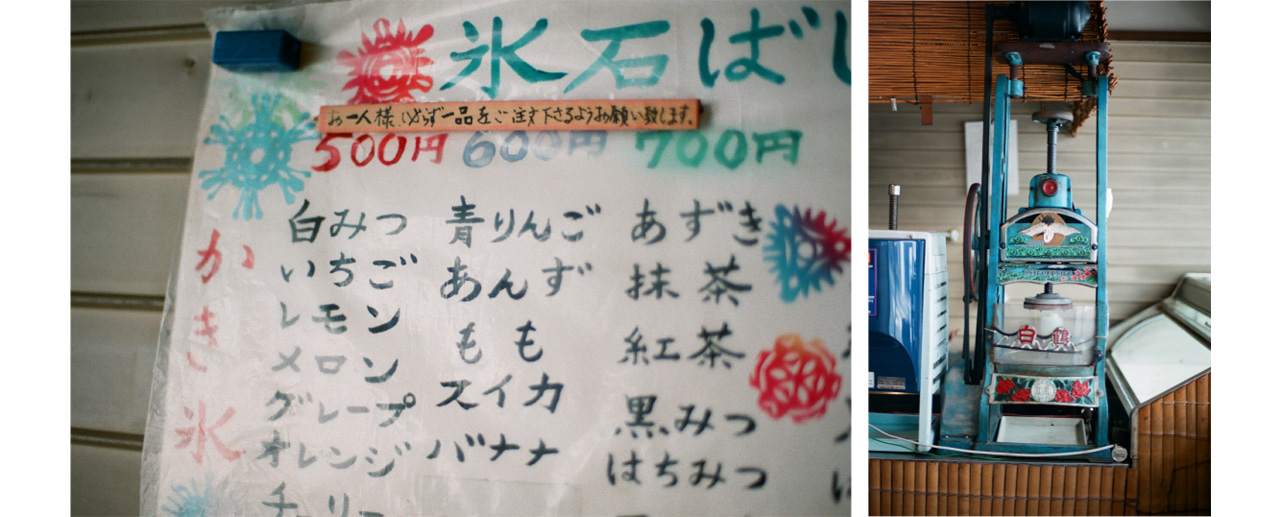 氷石ばし
お一人様、必ず一品をご注文下さるようお願い致します。
500円 600円 700円
かき氷
白みつ
いちご
レモン
メロン
グレープ
オレンジ
チェリー
青りんご
あんず
もも
スイカ
バナナ
あずき
抹茶
紅茶
黒みつ
はちみつ
白鶴